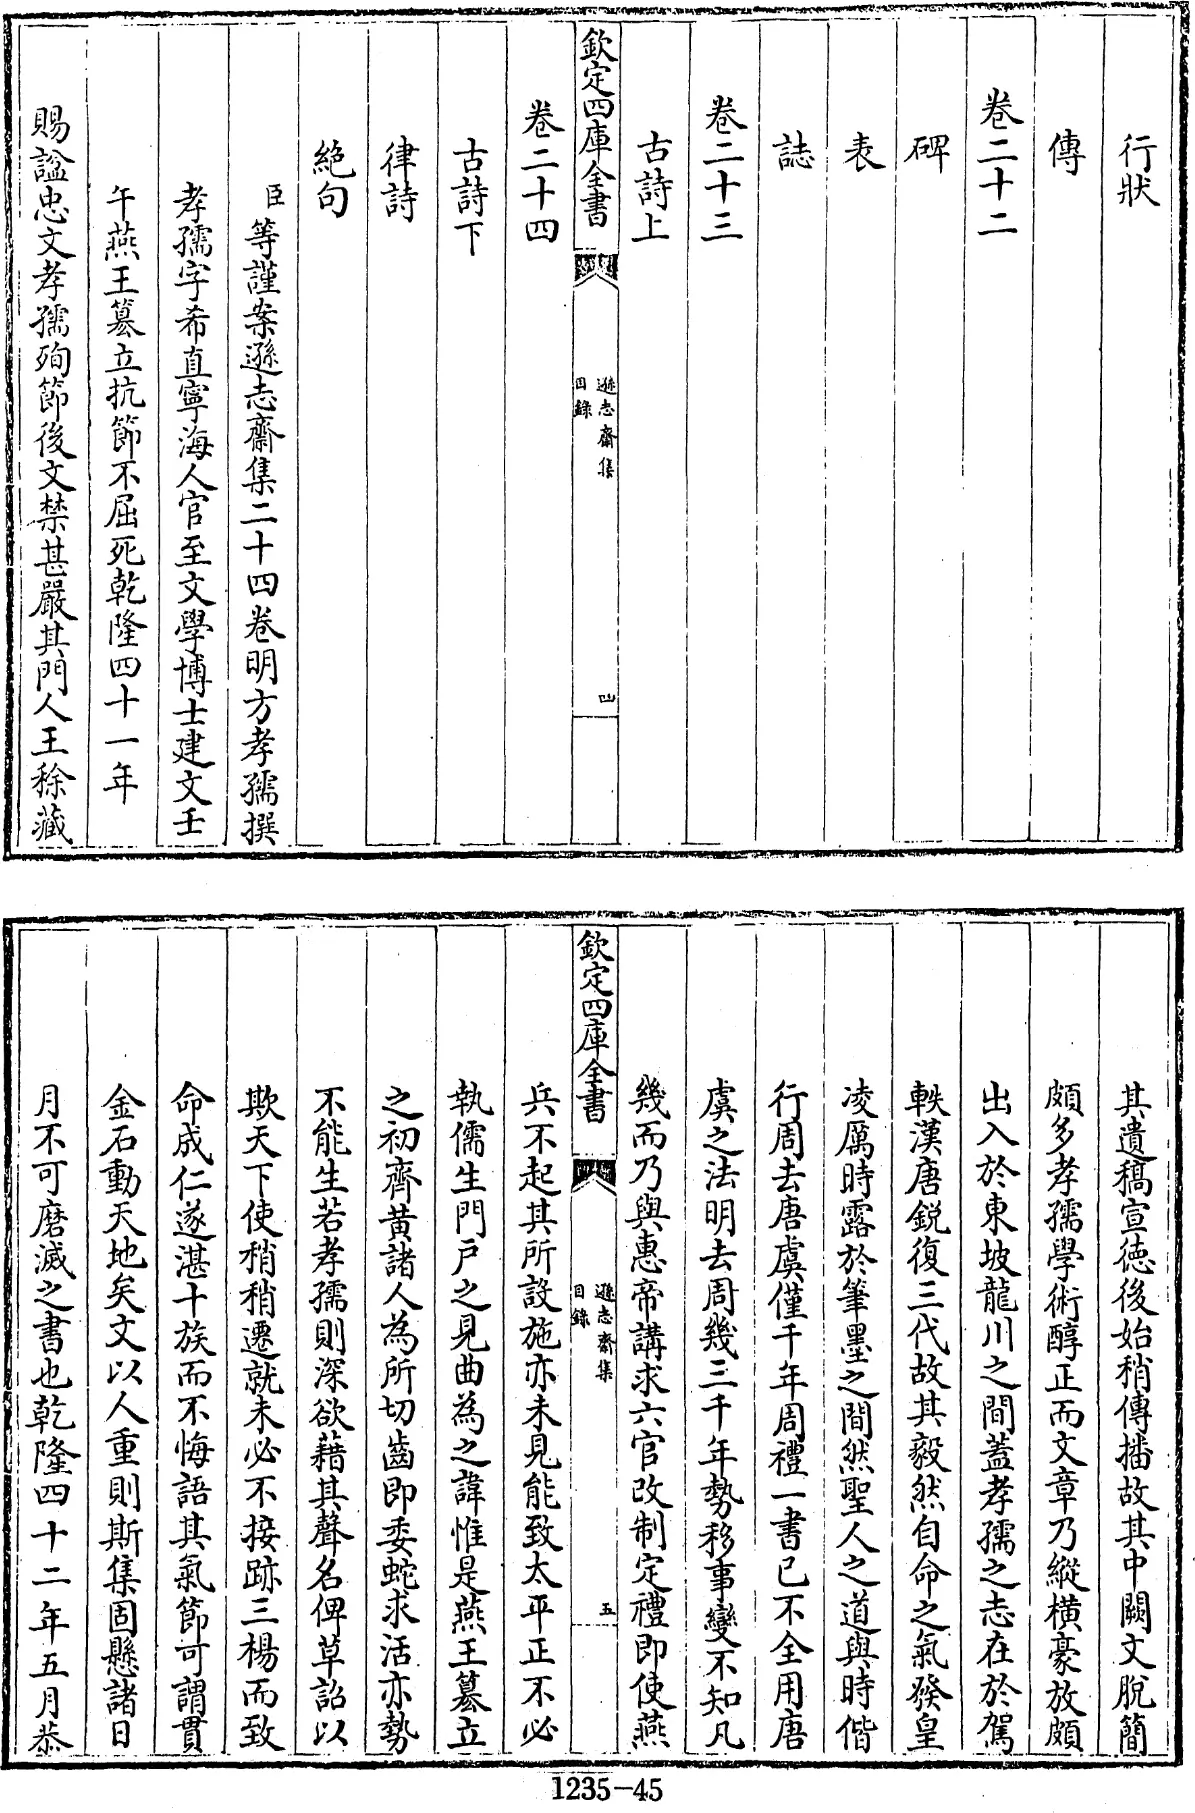 行狀
傳
卷二十二
碑
表
誌
卷二十三
古詩上
欽定四庫全書
遜志齋集
目錄
四
卷二十四
古詩下
律詩
絶句
臣等謹案遜志齋集二十四卷明方孝孺撰
孝孺字希直寧海人官至文學博士建文壬
午燕王篡立抗節不屈死乾隆四十一年
賜諡忠文孝孺殉節後文禁甚嚴其門人王稌藏
其遺稿宣德後始稍傳播故其中闕文脫簡
頗多孝孺學術醇正而文章乃縱橫豪放頗
出入於東坡龍川之間蓋孝孺之志在於駕
軼漢唐鋭復三代故其毅然自命之氣發皇
凌厲時露於筆墨之間然聖人之道與時偕
行周去唐虞僅千年周禮一書已不全用唐
虞之法明去周幾三千年勢移事變不知凡
幾而乃與惠帝講求六官改制定禮即使燕
欽定四庫全書
遜志齋集
目錄
五
兵不起其所設施亦未見能致太平正不必
執儒生門戶之見曲為之諱惟是燕王篡立
之初齊黃諸人為所切齒即委蛇求活亦勢
不能生若孝孺則深欲藉其聲名俾草詔以
欺天下使稍稍遷就未必不接跡三楊而致
命成仁遂湛十族而不悔語其氣節可謂貫
金石動天地矣文以人重則斯集固懸諸日
月不可磨滅之書也乾隆四十二年五月恭
1235-45